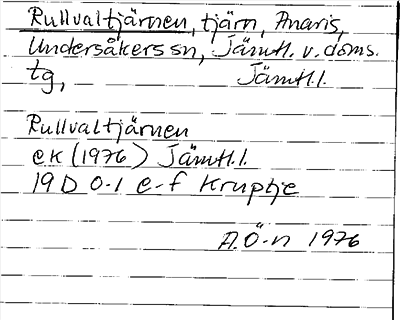 Rullvaltjärnen, tjärn, Anaris,
Undersåkers sn, Jämtl. v. doms.
tg, Jämtl. l.
Rullvaltjärnen
ek (1976) Jämtl. l.
19 D 0-1 e-f Kruptje
A.Ö-n 1976